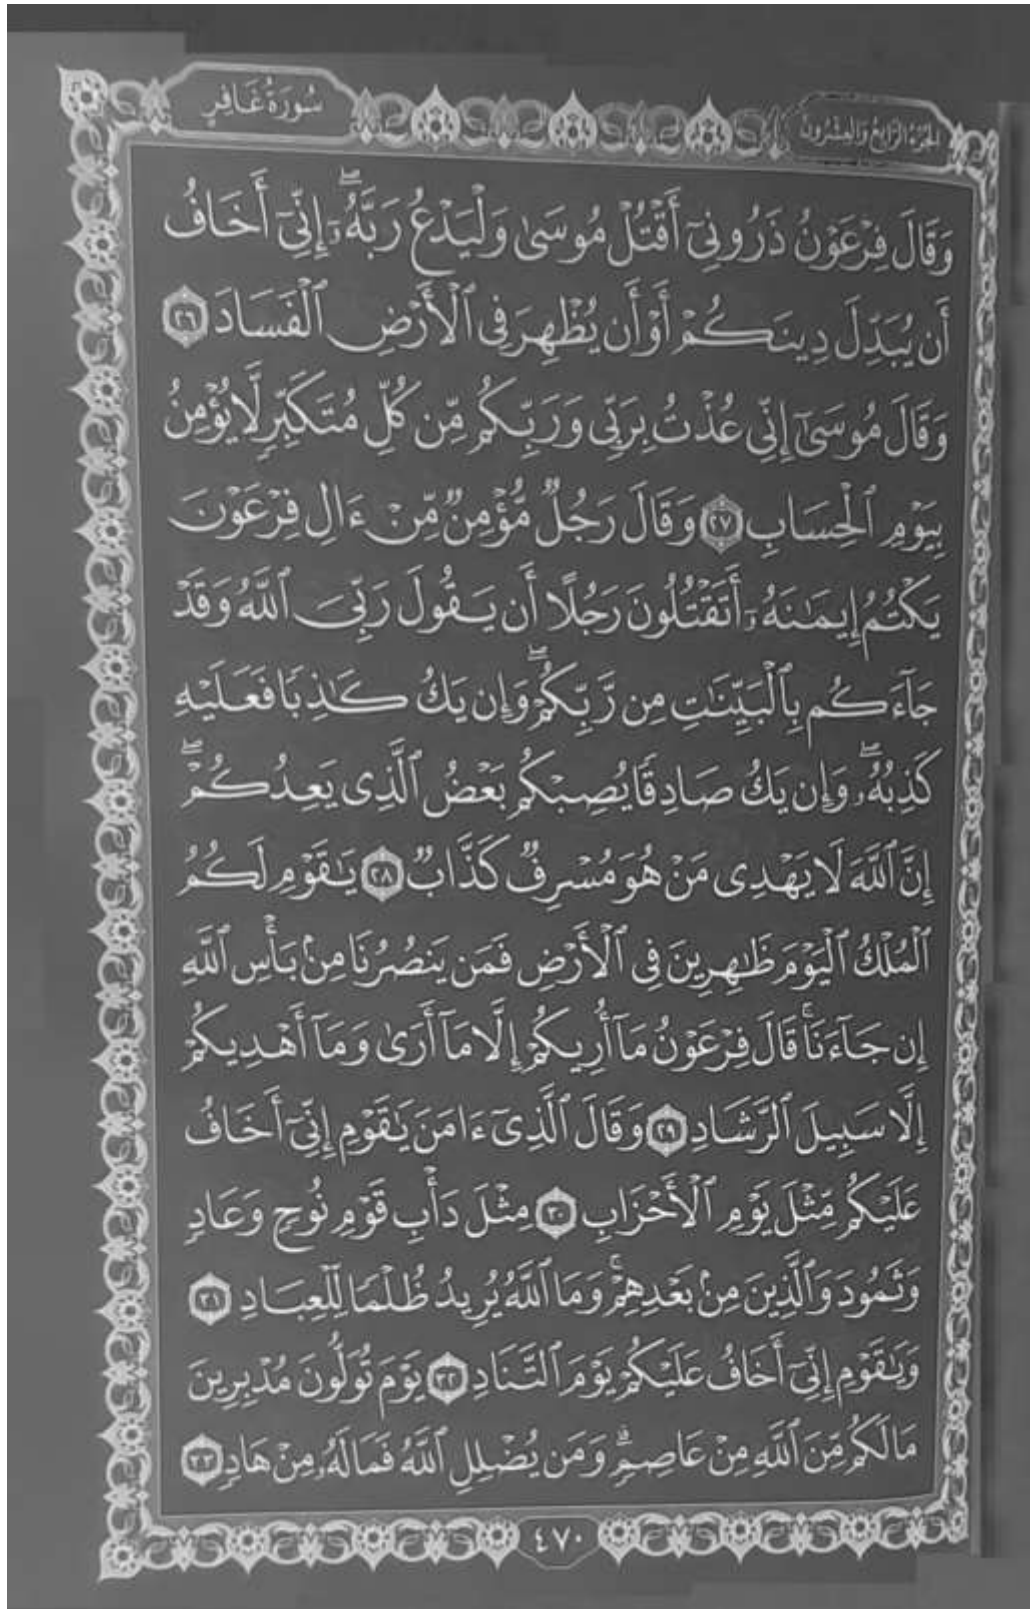 الجزء الرابع والعشرون
سُورَةُ غَافِرٍ
وَقَالَ فِرْعَوْنُ ذَرُونِيٓ أَقْتُلْ مُوسَىٰ وَلْيَدْعُ رَبَّهُۥٓۖ إِنِّيٓ أَخَافُ
أَن يُبَدِّلَ دِينَكُمْ أَوْ أَن يُظْهِرَ فِي ٱلْأَرْضِ ٱلْفَسَادَ ٢٦
وَقَالَ مُوسَىٰٓ إِنِّي عُذْتُ بِرَبِّي وَرَبِّكُم مِّن كُلِّ مُتَكَبِّرٍ لَّا يُؤْمِنُ
بِيَوْمِ ٱلْحِسَابِ ٢٧ وَقَالَ رَجُلٌ مُّؤْمِنٌ مِّنْ ءَالِ فِرْعَوْنَ
يَكْتُمُ إِيمَٰنَهُۥٓ أَتَقْتُلُونَ رَجُلًا أَن يَقُولَ رَبِّيَ ٱللَّهُ وَقَدْ
جَآءَكُم بِٱلْبَيِّنَٰتِ مِن رَّبِّكُمْۖ وَإِن يَكُ كَٰذِبًا فَعَلَيْهِ
كَذِبُهُۥۖ وَإِن يَكُ صَادِقًا يُصِبْكُم بَعْضُ ٱلَّذِي يَعِدُكُمْۖ
إِنَّ ٱللَّهَ لَا يَهْدِي مَنْ هُوَ مُسْرِفٌ كَذَّابٌ ٢٨ يَٰقَوْمِ لَكُمُ
ٱلْمُلْكُ ٱلْيَوْمَ ظَٰهِرِينَ فِي ٱلْأَرْضِ فَمَن يَنصُرُنَا مِنۢ بَأْسِ ٱللَّهِ
إِن جَآءَنَاۚ قَالَ فِرْعَوْنُ مَآ أُرِيكُمْ إِلَّا مَآ أَرَىٰ وَمَآ أَهْدِيكُمْ
إِلَّا سَبِيلَ ٱلرَّشَادِ ٢٩ وَقَالَ ٱلَّذِيٓ ءَامَنَ يَٰقَوْمِ إِنِّيٓ أَخَافُ
عَلَيْكُم مِّثْلَ يَوْمِ ٱلْأَحْزَابِ ٣٠ مِثْلَ دَأْبِ قَوْمِ نُوحٍ وَعَادٍ
وَثَمُودَ وَٱلَّذِينَ مِنۢ بَعْدِهِمْۚ وَمَا ٱللَّهُ يُرِيدُ ظُلْمًا لِّلْعِبَادِ ٣١
وَيَٰقَوْمِ إِنِّيٓ أَخَافُ عَلَيْكُمْ يَوْمَ ٱلتَّنَادِ ٣٢ يَوْمَ تُوَلُّونَ مُدْبِرِينَ
مَا لَكُم مِّنَ ٱللَّهِ مِنْ عَاصِمٍۗ وَمَن يُضْلِلِ ٱللَّهُ فَمَا لَهُۥ مِنْ هَادٍ ٣٣
٤٧٠